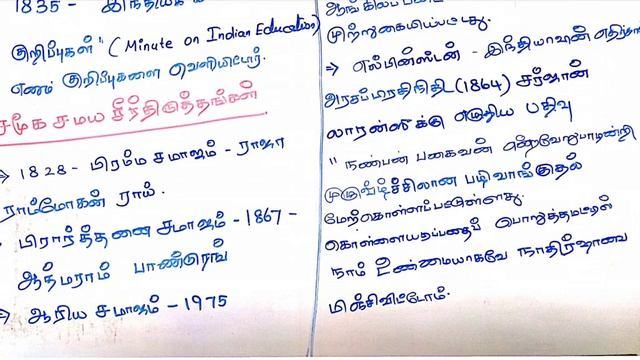 1835 - இந்தியக்
குறிப்புகள்" (Minute on Indian Education)
எனும் குறிப்புகளை வெளியிட்டோர்.
சமூக சமய சீர்திருத்தங்கள்
→ 1828 - பிரம்ம சமாஜம் - ராஜா
ராம்மோகன் ராய்.
பிரார்த்தனை சமாஜம் - 1867 -
ஆத்மராம் பாண்டுரங்
→ ஆரிய சமாஜம் - 1975
முற்றுகையிடப்பட்டது.
⇒ எல்பின்ஸ்டன் - இந்தியாவின்
அரசப்பிரதிநிதி (1864) சர்ஜான்
லாரன்ஸிக்கு எழுதிய பதிவு
" நண்பன் பகைவன் என்றவேறுபாடின்றி
முழுவீச்சிலான பழிவாங்குதல்
மேற்கொள்ளப்பட்டுள்ளது.
கொள்ளையடிப்பதைப் பொறுத்தமட்டில்
நாம் உண்மையாகவே நாதிர்ஷாவை
மிஞ்சிவிட்டோம்.